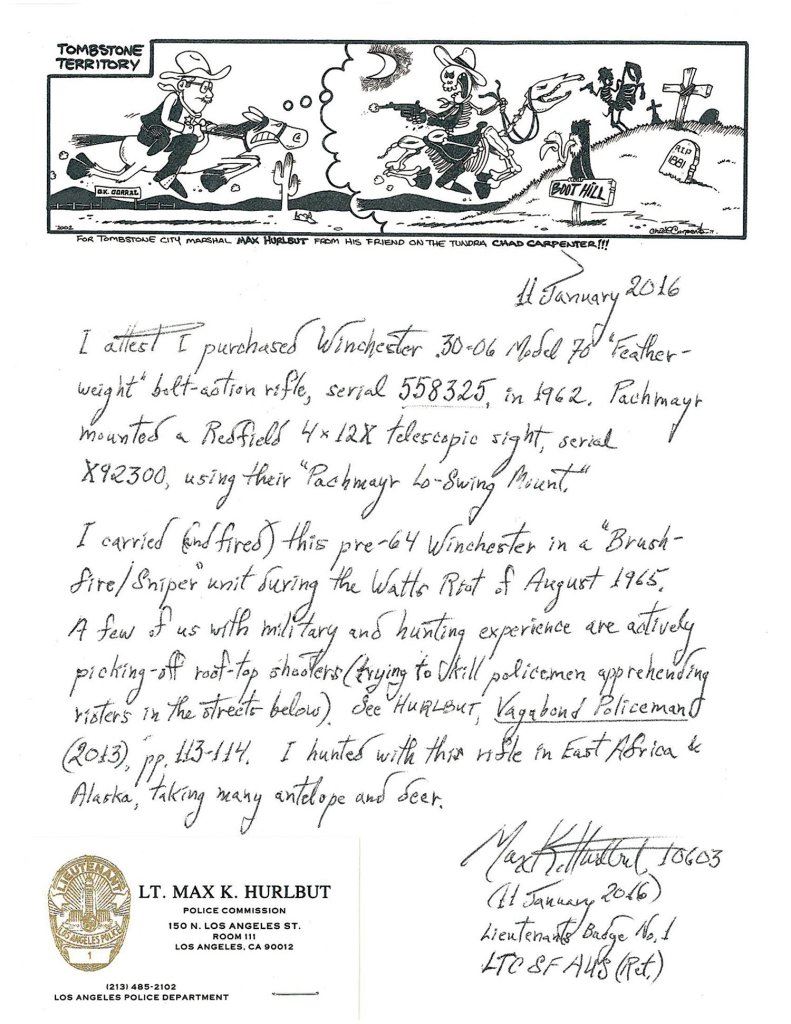 TOMBSTONE
TERRITORY
O.K. CORRAL
BOOT HILL
R.I.P.
1881
2002
FOR TOMBSTONE CITY MARSHAL MAX HURLBUT FROM HIS FRIEND ON THE TUNDRA CHAD CARPENTER!!!
11 January 2016
I attest I purchased Winchester .30-06 Model 70 "Feather-
weight" bolt-action rifle, serial 558325, in 1962. Pachmayr
mounted a Redfield 4x12X telescopic sight, serial
X92300, using their "Pachmayr Lo-Swing Mount."
I carried (and fired) this pre-64 Winchester in a "Brush-
fire/Sniper" unit during the Watts Riot of August 1965.
A few of us with military and hunting experience are actively
picking-off roof-top shooters (trying to kill policemen apprehending
rioters in the streets below). See HURLBUT, Vagabond Policeman
(2013), pp. 113-114. I hunted with this rifle in East Africa &
Alaska, taking many antelope and deer.
Max K. Hurlbut, 10603
(11 January 2016)
Lieutenants Badge No. 1
LTC SF AUS (Ret.)
LIEUTENANT
LOS ANGELES POLICE
1
LT. MAX K. HURLBUT
POLICE COMMISSION
150 N. LOS ANGELES ST.
ROOM 111
LOS ANGELES, CA 90012
(213) 485-2102
LOS ANGELES POLICE DEPARTMENT